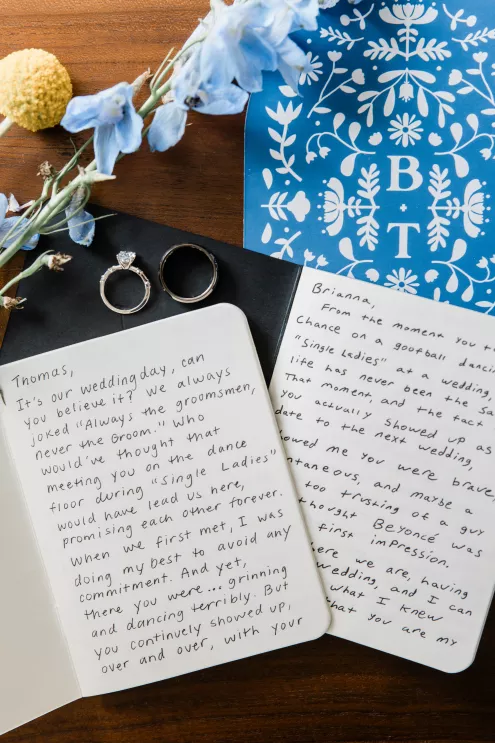 B
+
T
Thomas,
It's our wedding day, can
you believe it? We always
joked "Always the groomsmen,
never the Groom." Who
would've thought that
meeting you on the dance
floor during "Single Ladies"
would have lead us here,
promising each other forever.
When we first met, I was
doing my best to avoid any
commitment. And yet,
there you were... grinning
and dancing terribly. But
you continuely showed up,
over and over, with your
Brianna,
From the moment you
chance on a goofball
"Single Ladies" at a wedding,
life has never been the
That moment, and the fact
you actually showed up as
date to the next wedding,
me you were brave
and maybe a
too trusting of a guy
Beyoncé was
first impression.
we are, having
wedding, and I can
what I knew
that you are my